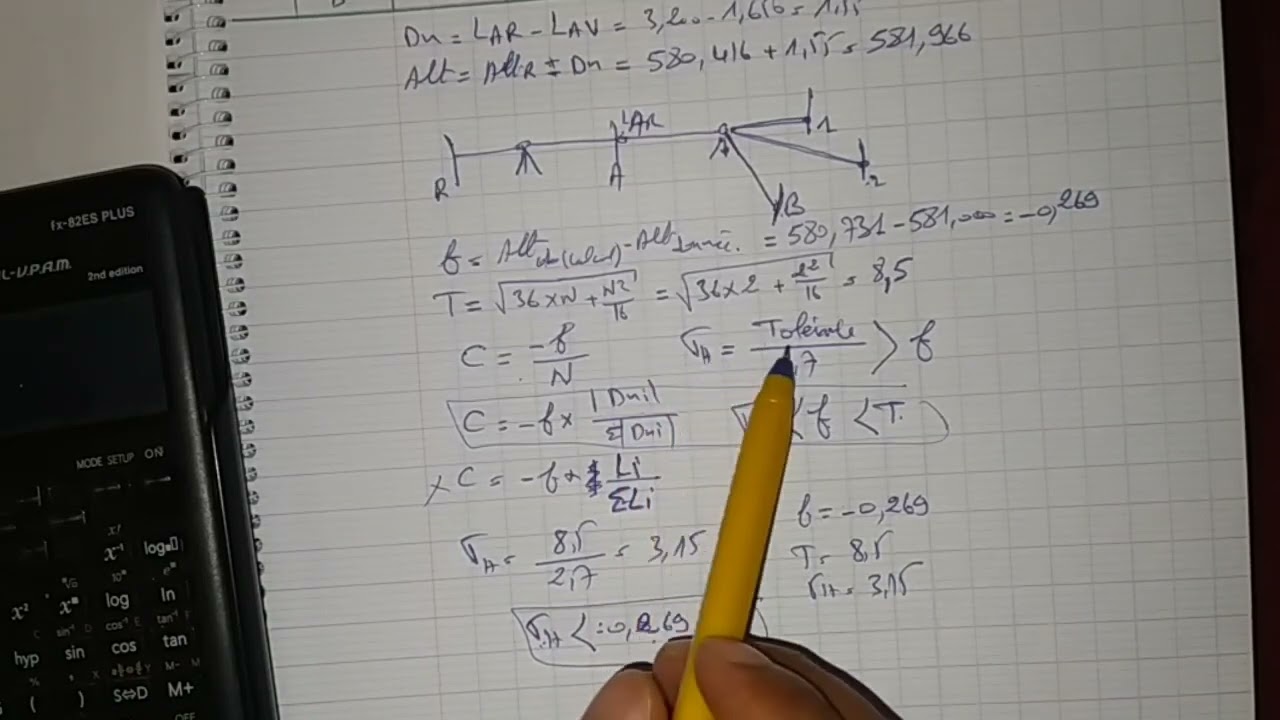 Dn = LAR - LAV = 3,200 - 1,650 = 1,55
Alt = AltR ± Dn = 580,416 + 1,55 = 581,966
LAR
R
A
1
2
B
f = Alt - Alt donnée. = 580,731 - 581,000 = -0,269
T = √36×N + N²/16 = √36×2 + 2²/16 = 8,5
C = -f/N
σH = Tolérance/,7 > f
C = -f × |Dni|/Σ|Dni|
< f < T.
× C = -f × Li/ΣLi
σH = 8,5/2,7 = 3,15
f = -0,269
T = 8,5
σH = 3,15
σH < -0,269
fx-82ES PLUS
L-V.P.A.M.
2nd edition
MODE SETUP ON
x! 
x⁻¹ log
√ 10ˣ eˣ
x² xⁿ log ln
C sin⁻¹ D cos⁻¹ E tan⁻¹ F
hyp sin cos tan
% , X M- M
( ) S⇔D M+
OFF